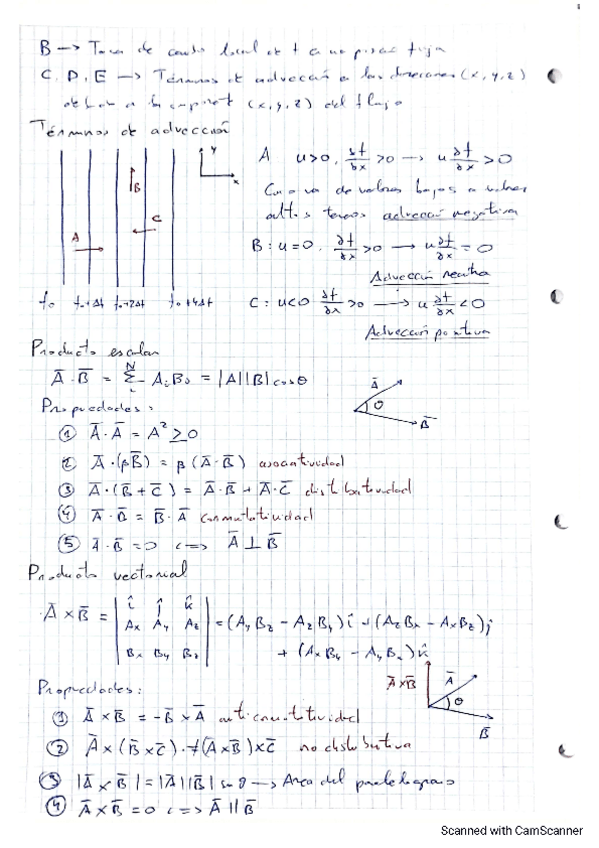 B → Tasa de cambio local de f en un punto fijo
C, D, E → Términos de advección en las direcciones (x, y, z)
debido a la componente (x, y, z) del flujo
Términos de advección
y
x
A
B
C
f₀ f₀+Δf f₀+2Δf f₀+4Δf
A u>0, ∂f/∂x >0 → u ∂f/∂x >0
Cuando va de valores bajos a valores
altos tenemos advección negativa
B: u=0, ∂f/∂x >0 → u ∂f/∂x = 0
Advección neutra
C: u<0 ∂f/∂x >0 → u ∂f/∂x <0
Advección positiva
Producto escalar
A̅ · B̅ = Σᵢᴺ AᵢBᵢ = |A||B| cos θ
A̅
θ
B̅
Propiedades:
① A̅ · A̅ = A² ≥ 0
② A̅ · (βB̅) = β (A̅ · B̅) asociatividad
③ A̅ · (B̅ + C̅) = A̅ · B̅ + A̅ · C̅ distributividad
④ A̅ · B̅ = B̅ · A̅ conmutatividad
⑤ A̅ · B̅ = 0 <=> A̅ ⊥ B̅
Producto vectorial
A̅ × B̅ = | î ĵ k̂ | = (AyBz − AzBy) î + (AzBx − AxBz) ĵ
| Ax Ay Az |
| Bx By Bz | + (AxBy − AyBx) k̂
A̅×B̅
A̅
θ
B̅
Propiedades:
① A̅ × B̅ = −B̅ × A̅ anticonmutatividad
② A̅ × (B̅ × C̅) ≠ (A̅ × B̅) × C̅ no distributiva
③ |A̅ × B̅| = |A̅||B̅| sen θ → Area del paralelogramo
④ A̅ × B̅ = 0 <=> A̅ || B̅
Scanned with CamScanner